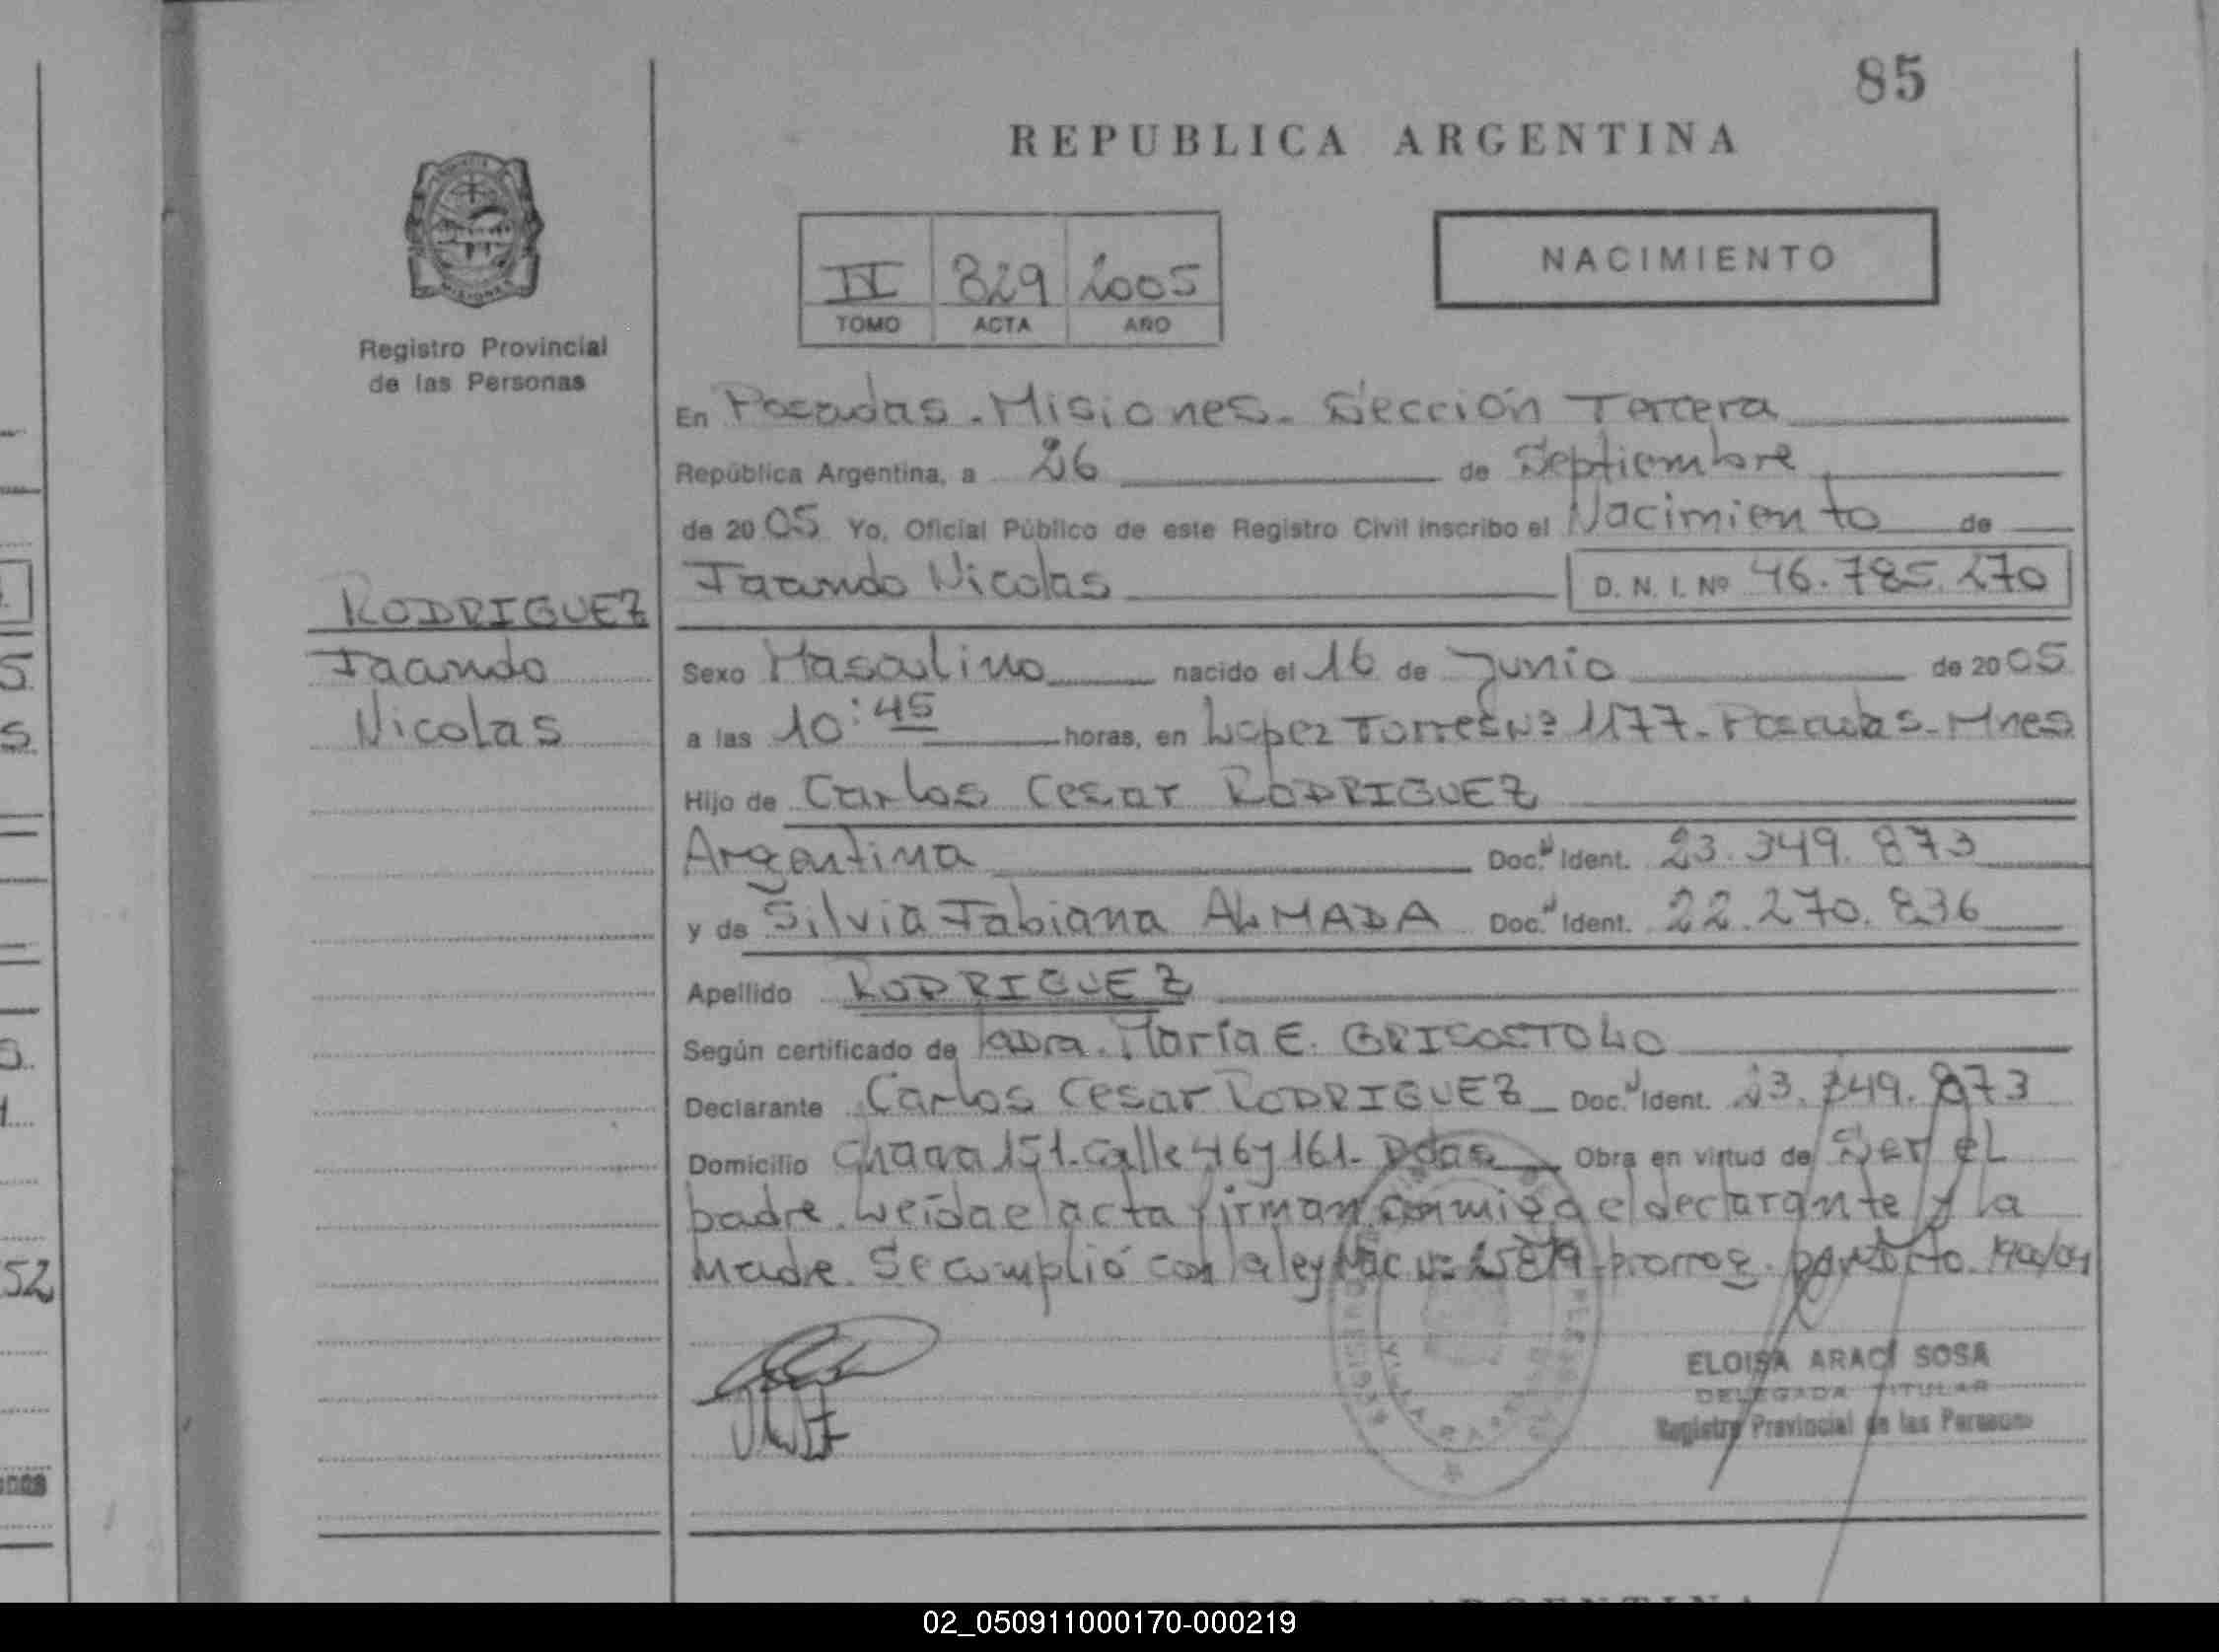 85
REPUBLICA ARGENTINA
II 829 2005
TOMO ACTA AÑO
NACIMIENTO
Registro Provincial
de las Personas
En Posadas - Misiones - Sección Tercera
República Argentina, a 26 de Septiembre
de 2005 Yo, Oficial Público de este Registro Civil inscribo el Nacimiento de
Facundo Nicolas D. N. I. Nº 46.785.270
RODRIGUEZ
Facundo
Nicolas
Sexo Masculino nacido el 16 de Junio de 2005
a las 10:45 horas, en Lopez Torres Nº 1177 - Posadas - Mnes
Hijo de Carlos Cesar RODRIGUEZ
Argentina Doc. Ident. 23.349.873
y de Silvia Fabiana ALMADA Doc. Ident. 22.270.836
Apellido RODRIGUEZ
Según certificado de María E. GRISOSTOLO
Declarante Carlos Cesar RODRIGUEZ Doc. Ident. 23.349.873
Domicilio Chacra 151 - Calle 46 y 161 - Pdas Obra en virtud de Ser el
padre. Leída el acta firman conmigo el declarante y la
madre. Se cumplió con la ley Nac Nº prorrog. por Dcto.
ELOISA ARACI SOSA
DELEGADA TITULAR
Registro Provincial de las Personas
52
02_050911000170-000219